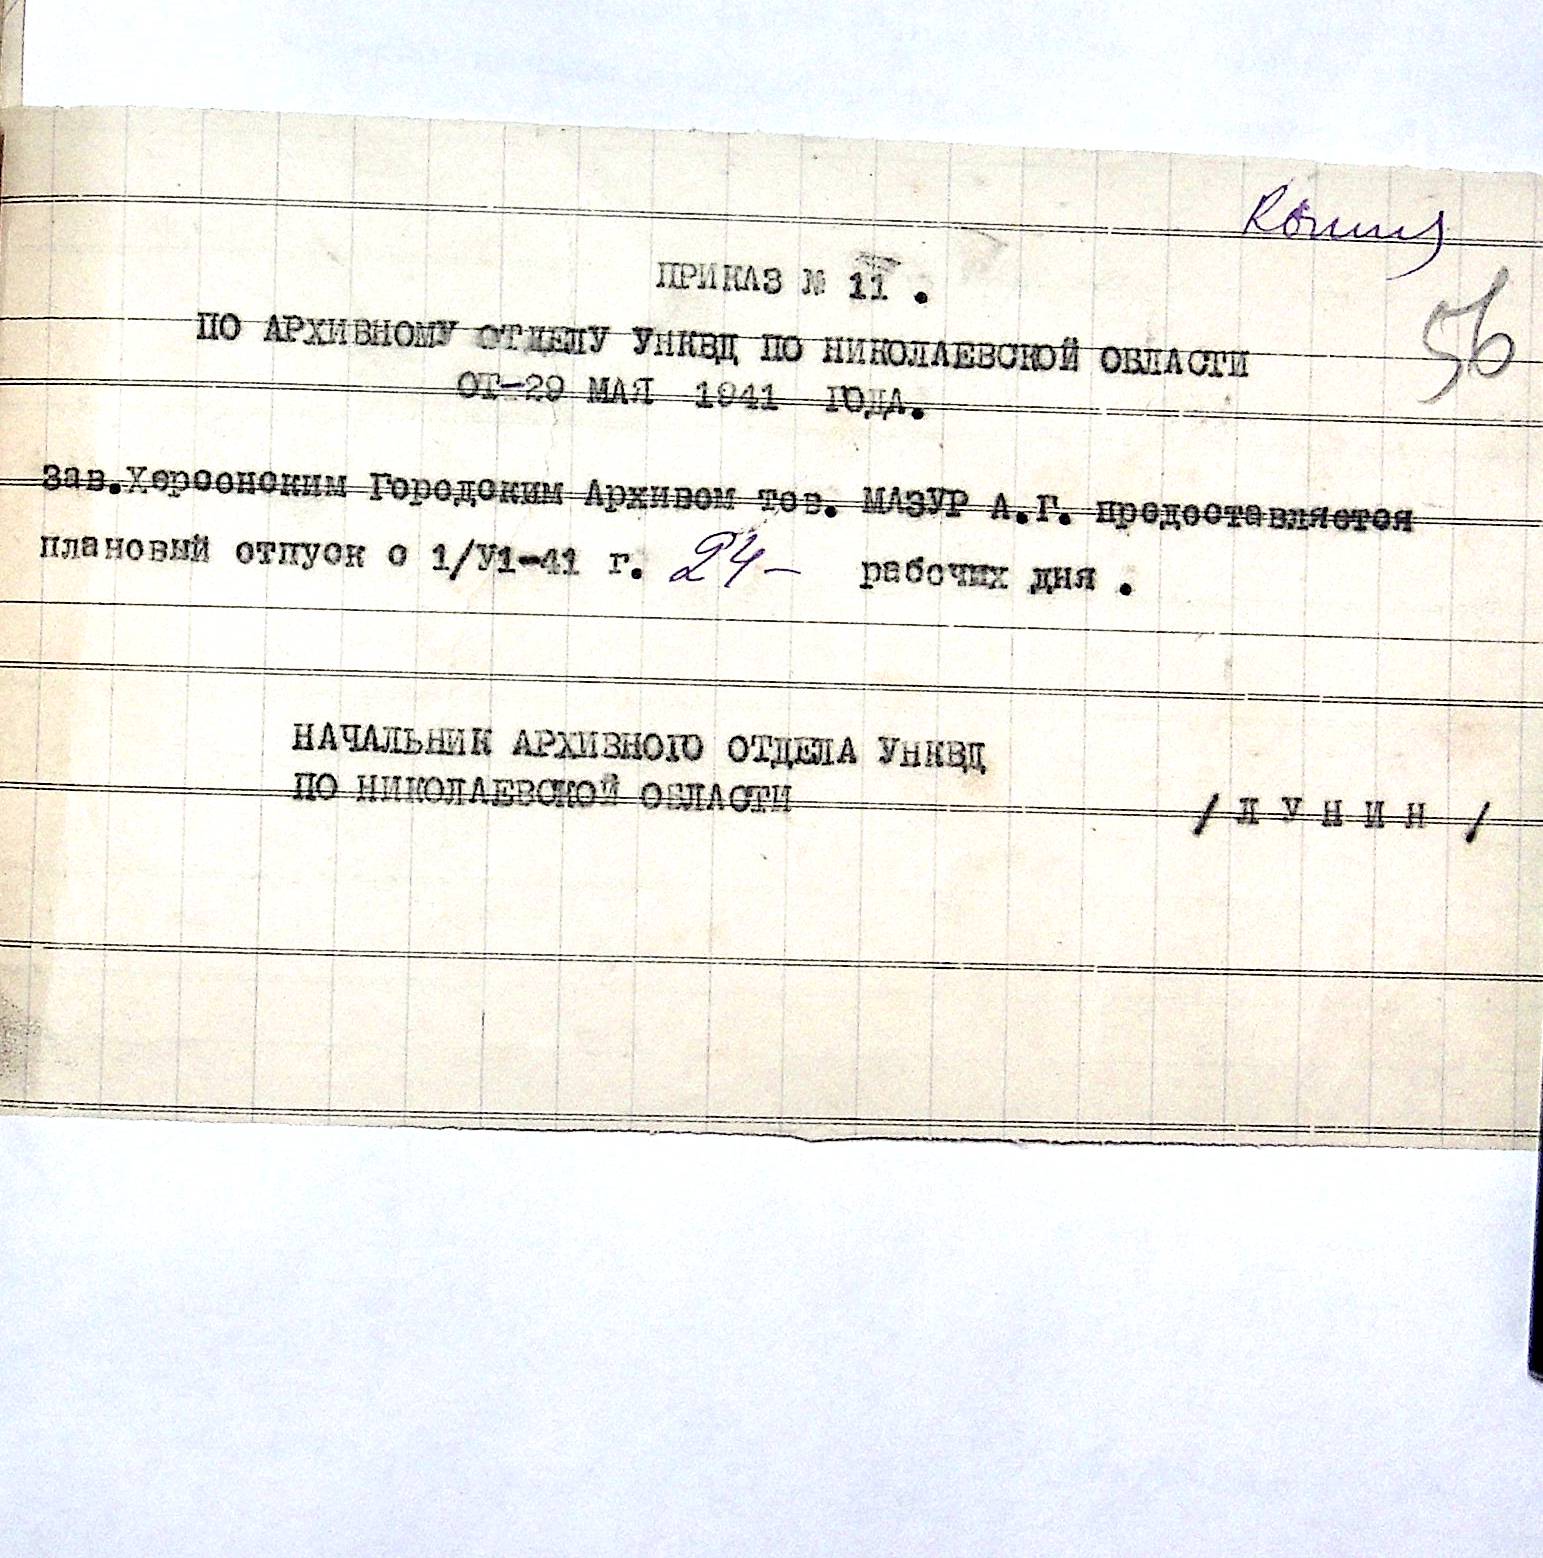 Копия
56
ПРИКАЗ № 11 .
ПО АРХИВНОМУ ОТДЕЛУ УНКВД ПО НИКОЛАЕВСКОЙ ОБЛАСТИ
ОТ-29 МАЯ 1941 ГОДА.
Зав.Херсонским Городским Архивом тов. МАЗУР А.Г. предоставляется
плановый отпуск с 1/У1-41 г. 24- рабочих дня .
НАЧАЛЬНИК АРХИВНОГО ОТДЕЛА УНКВД
ПО НИКОЛАЕВСКОЙ ОБЛАСТИ
/ Л У Н И Н /